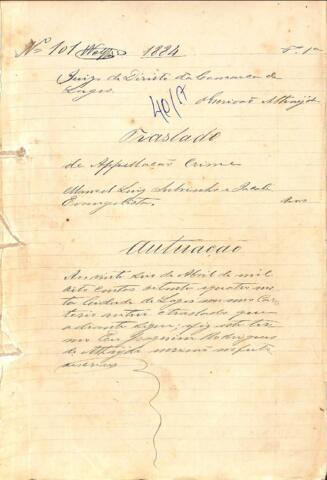 Nº 101 1884 Fl. 1ª
Juizo de Direito da Comarca de
Lages
40/A
Escrivão Athayde
Traslado
de Appellação Crime
Manoel Luiz Sobrinho e
Evangelista Reos
Autuação
Aos vinte de Abril de mil
oito centos oitenta e quatro nes-
ta Cidade de Lages em meo Car-
torio autuo o traslado que
adiante segue; fiz este ter-
mo Eu Joaquim Rodrigues
de Athayde escrivão
escrevi